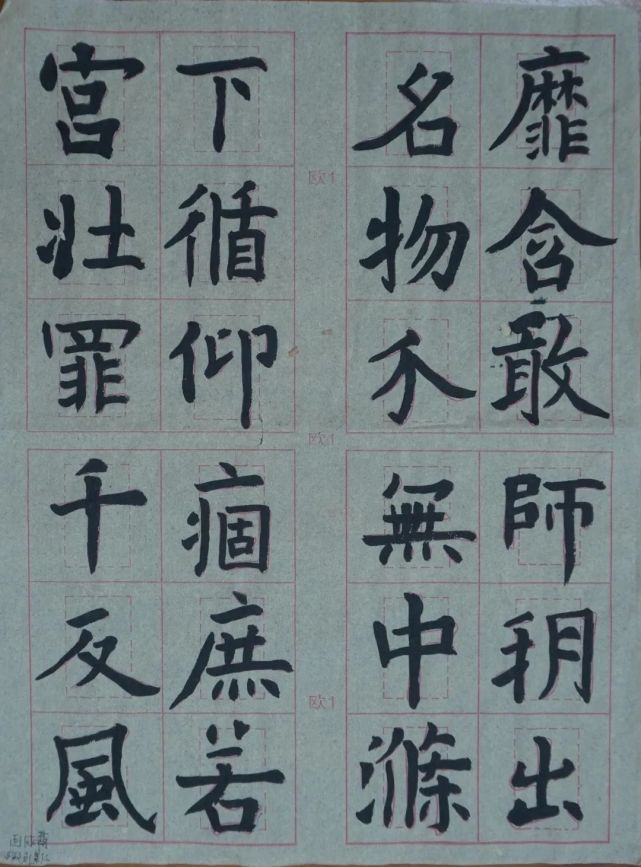 靡含敢師玥出
名物不無中滌
欧1
欧1
欧1
下循仰痼庶若
宫壮罪千反風